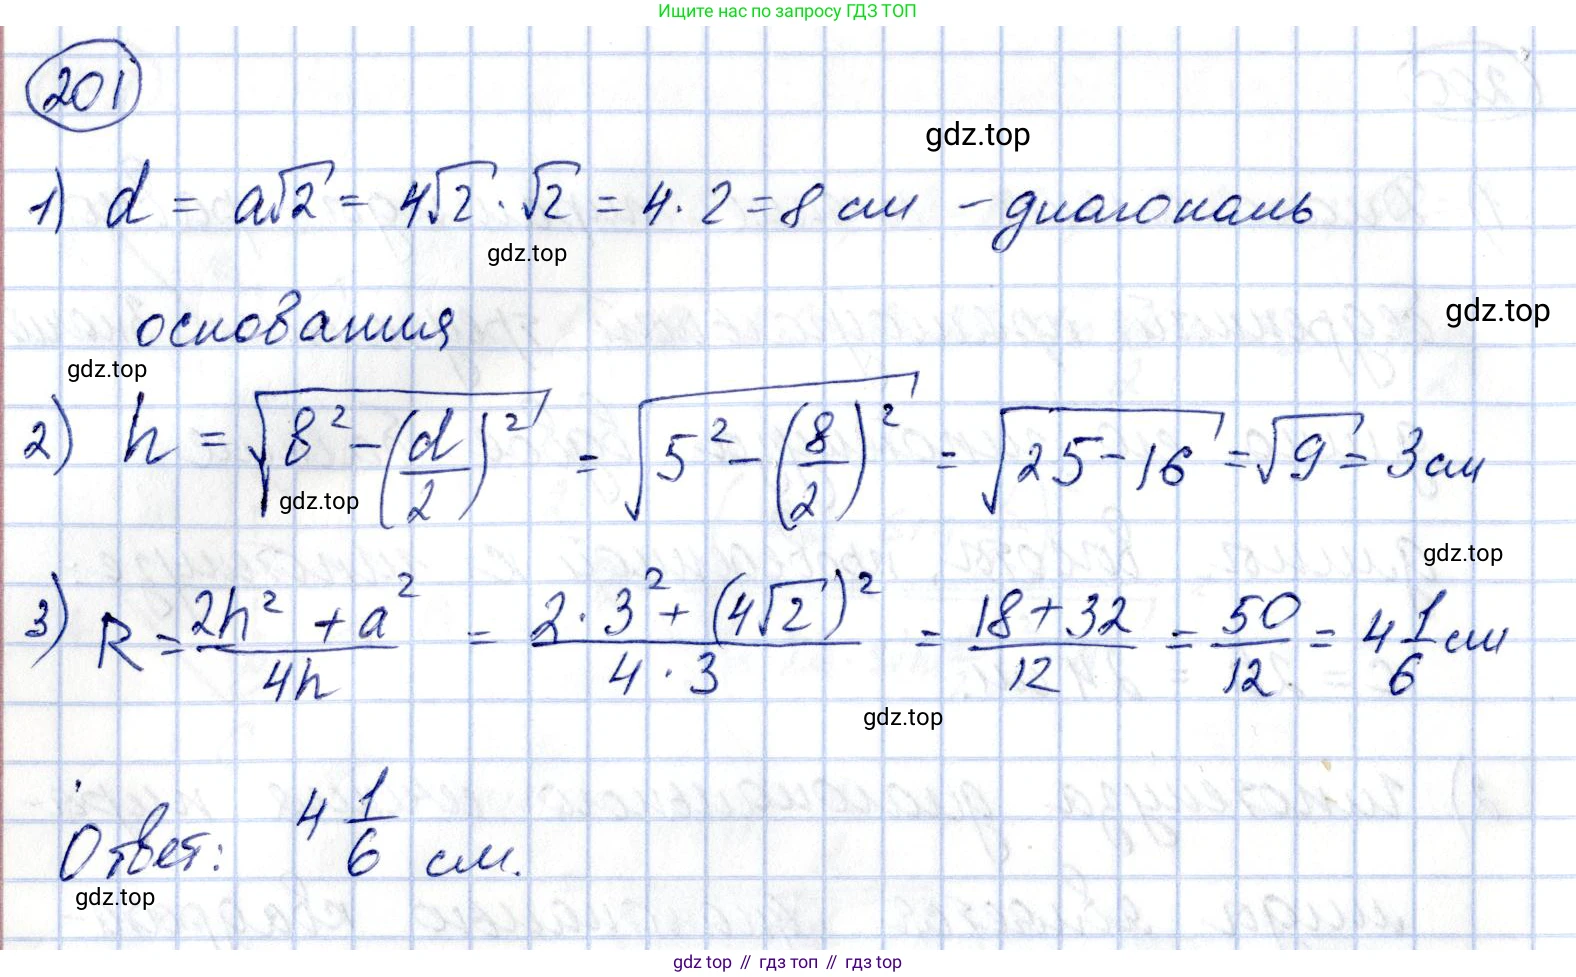 Ищите нас по запросу ГДЗ ТОП
201
gdz.top
1) d = a√2 = 4√2 · √2 = 4 · 2 = 8 см – диагональ
gdz.top
основания
gdz.top
gdz.top
2) h = √(8² – (d/2)²) = √(5² – (8/2)²) = √(25 – 16) = √9 = 3 см
gdz.top
gdz.top
3) R = (2h² + a²)/(4h) = (2 · 3² + (4√2)²)/(4 · 3) = (18 + 32)/12 = 50/12 = 4 1/6 см
gdz.top
Ответ: 4 1/6 см.
gdz.top
gdz top // гдз топ // gdz top